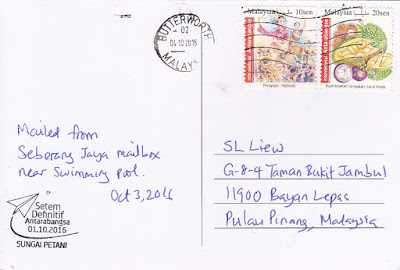 BUTTERWORTH
02
04-10 2016
MALAYSIA
Malaysia 20sen
Malaysia 20sen
Mailed from
Seberang Jaya mailbox
near Swimming pool.
Oct 3, 2016
SL Liew
G-8-4 Taman Bukit Jambul
11900 Bayan Lepas
Pulau Pinang, Malaysia
Setem
Definitif
Antarabangsa
01.10.2016
SUNGAI PETANI